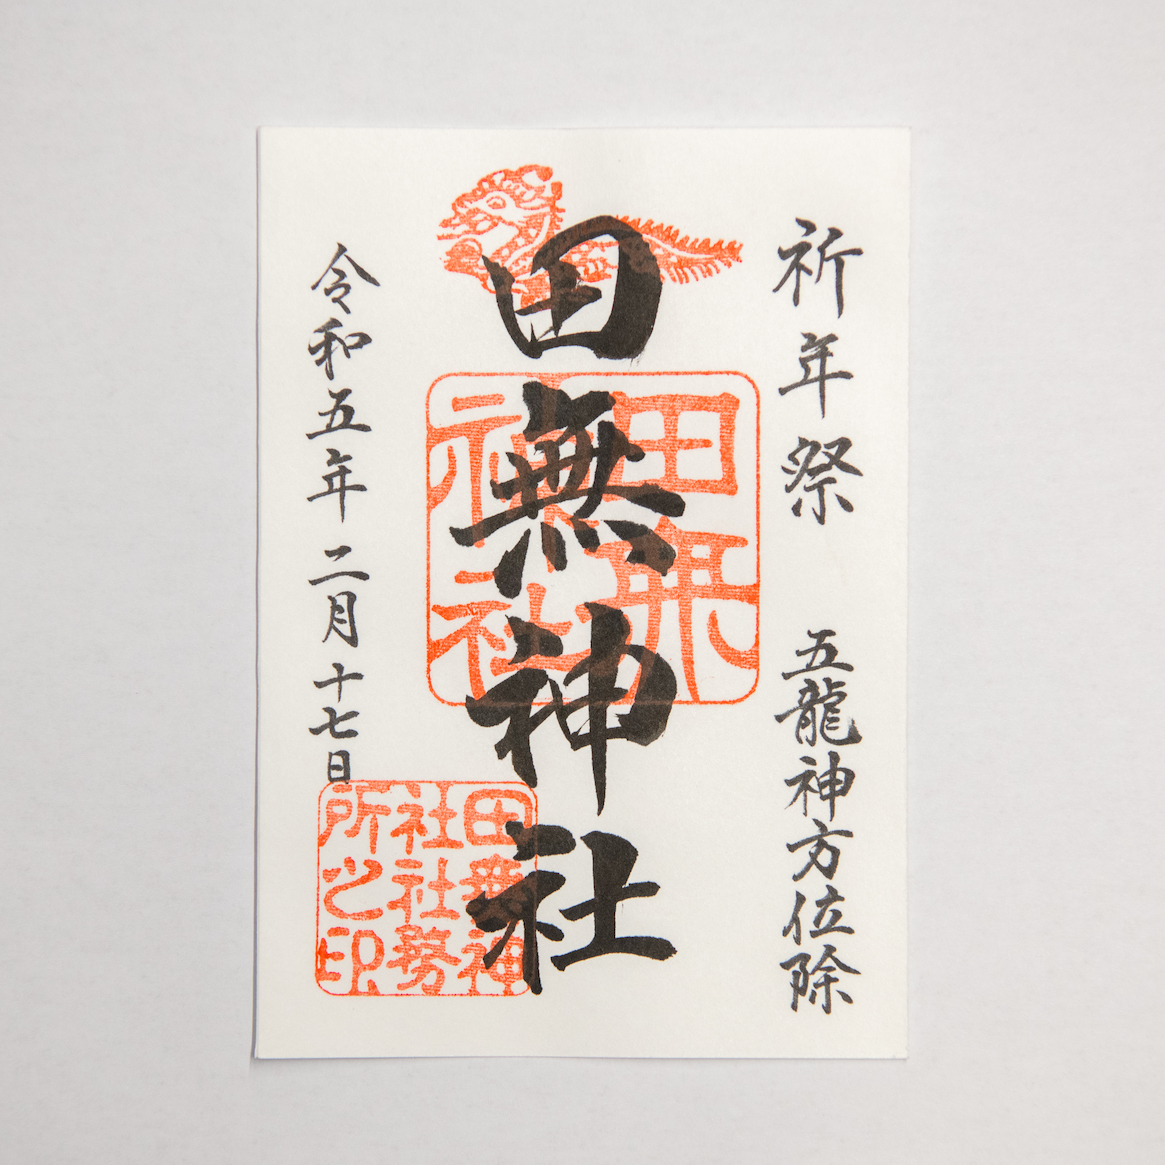 祈年祭 五龍神方位除
田無神社
令和五年 二月十七日
田無
神社
田無神
社社務
所之印